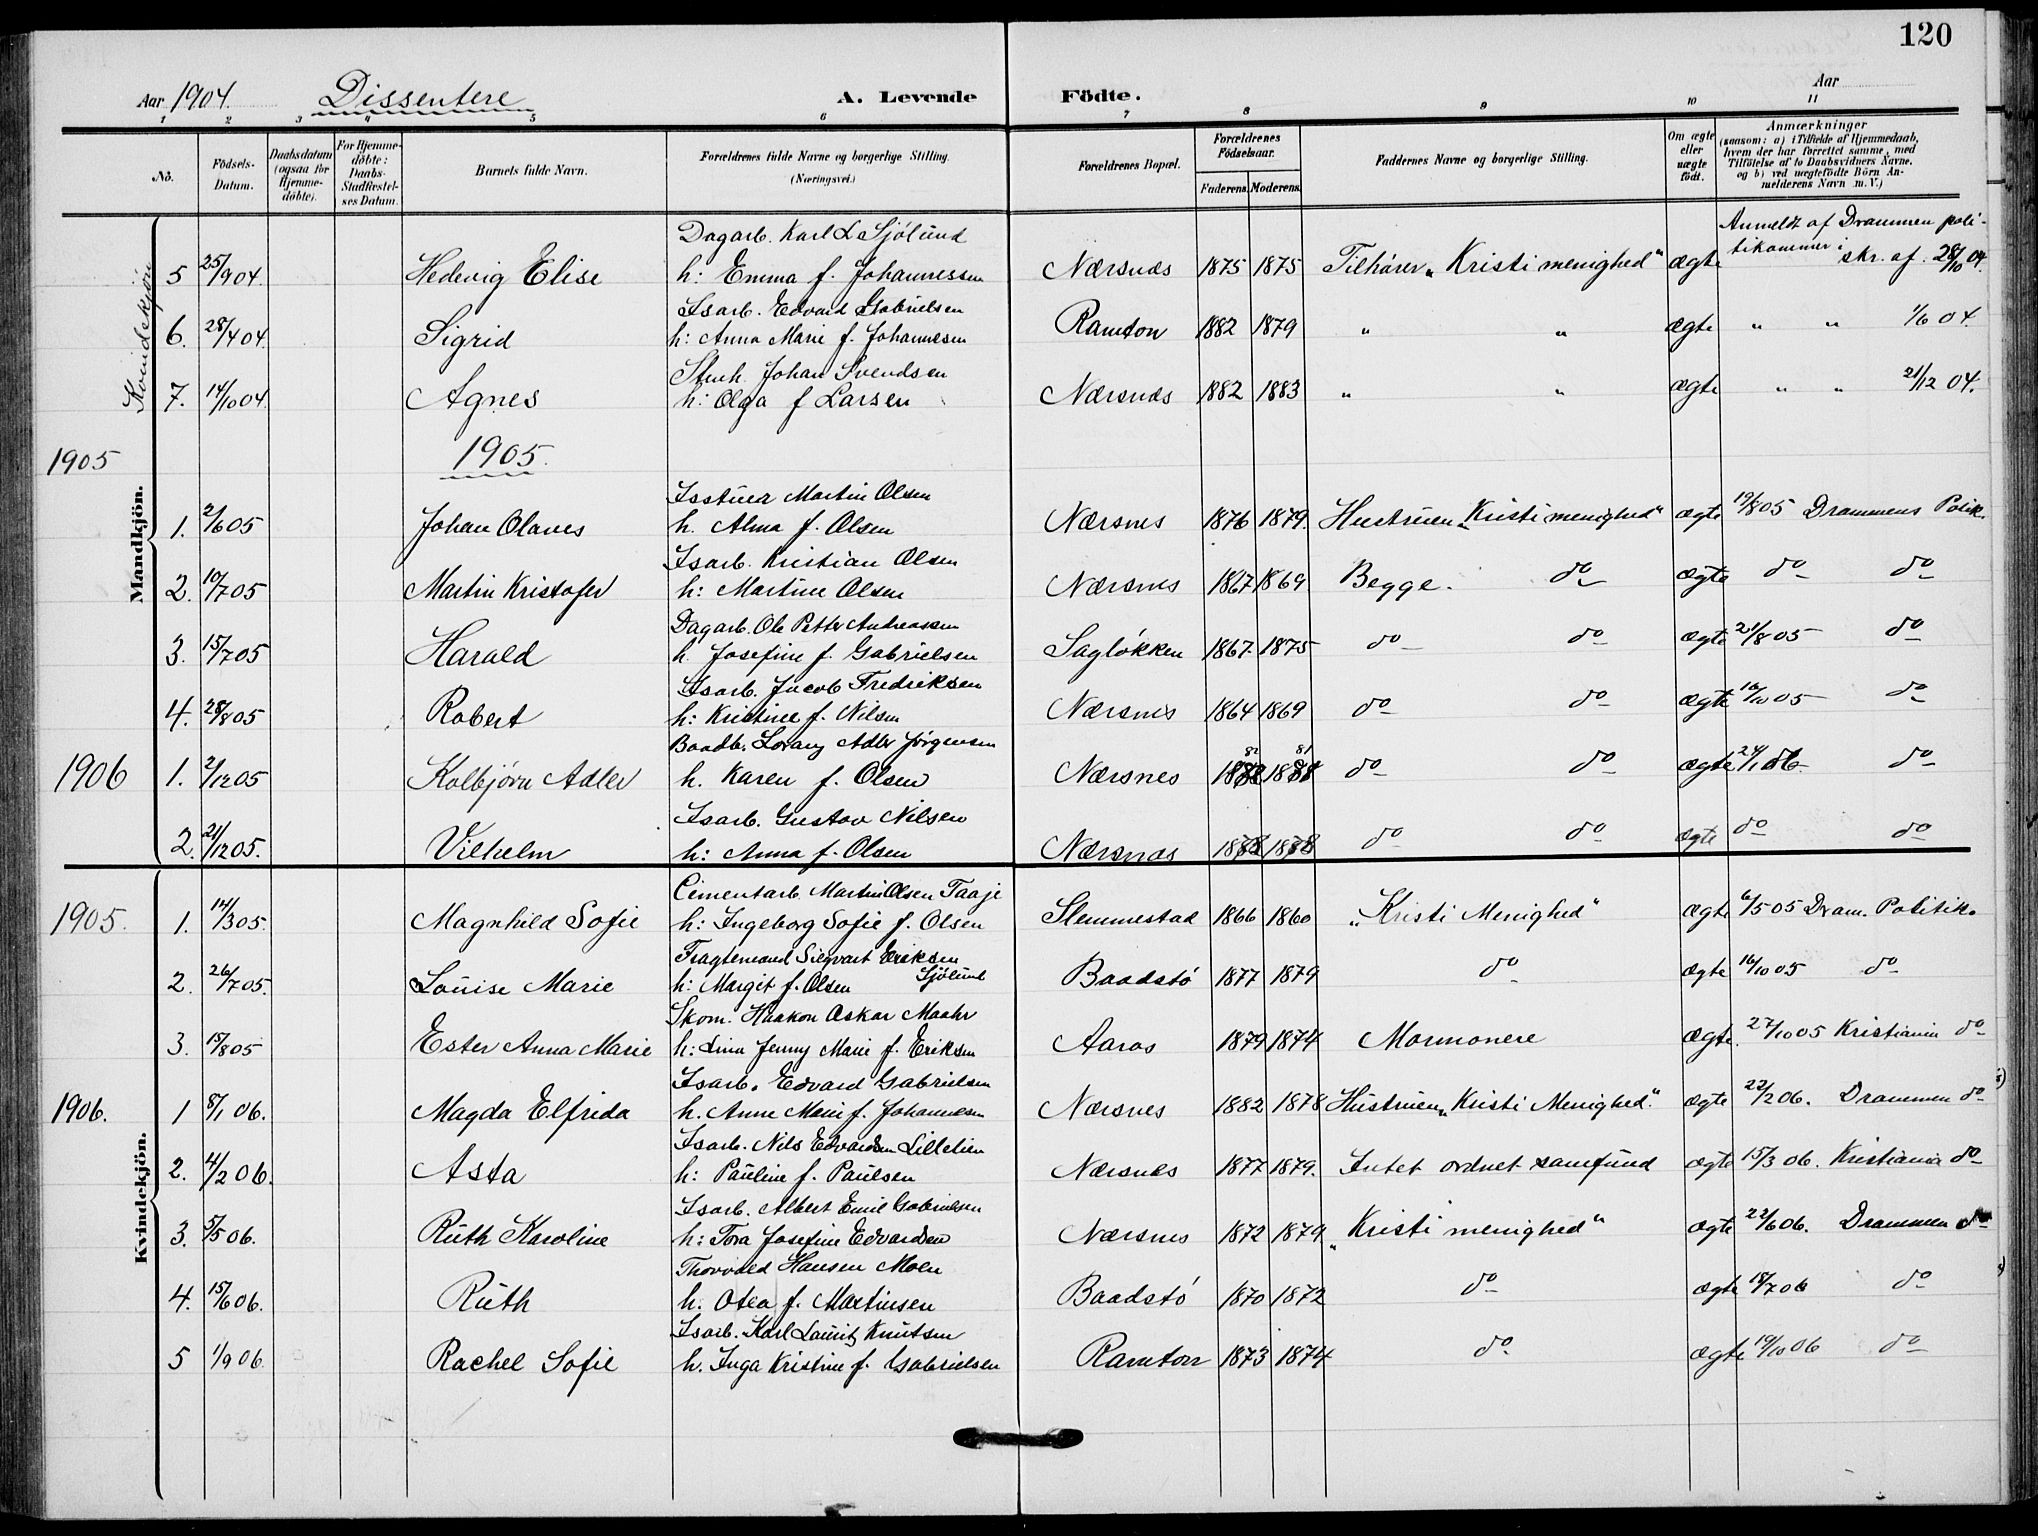 120
Aar 1904. Dissentere A. Levende Födte. Aar
1 2 3 4 5 6 7 8 9 10 11
No. Födsels-Datum. Daabsdatum (ogsaa for Hjemme-döbte). For Hjemme-döbte: Daabs-Stadfæstel-ses Datum. Barnets fulde Navn. Forældrenes fulde Navne og borgerlige Stilling. (Næringsvei.) Forældrenes Bopæl. Forældrenes Födselsaar. Faderens. Moderens. Faddernes Navne og borgerlige Stilling. Om ægte eller uægte födt. Anmærkninger (saasom: a) i Tilfælde af Hjemmedaab, hvem der har forrettet samme, med Tilföielse af to Daabsvidners Navne, og b) ved uægtefödte Börn An-melderens Navn m. V.)
Kvindekjön
Dagarb. Karl L Sjölund Anmeldt af Drammen poli-
5 25/9 04. Hedevig Elise h: Emma f. Johannessen Nærsnæs 1875 1875 Tilhører „Kristi menighed" ægte tikammer i skr. af. 28/10 04.
Isarb. Edvard Gabrielsen
6. 28/4 04. Sigrid h: Anna Marie f. Johannesen Ramton 1882 1879 " " ægte " " 1/6 04.
Stenh. Johan Svendsen
7. 14/10 04. Agnes h: Olga f Larsen Nærsnæs 1882 1883 " " ægte " " 21/12 04.
1905 1905.
Mandkjön.
Isstuer Martin Olsen
1. 2/6 05 Johan Olaves h. Alma f. Olsen Nærsnes 1876 1879. Hustruen „Kristi menighed" ægte 19/8 05 Drammens Politik.
Isarb. Kristian Olsen
2. 10/7 05 Martin Kristofer h: Martine Olsen Nærsnes 1867 1869. Begge. do ægte do do
Dagarb. Ole Petter Andreassen
3. 15/7 05 Harald h. Josefine f. Gabrielsen Sagløkken 1867. 1875 do do ægte 21/8 05 do
Isarb. Jacob Fredriksen
4. 28/8 05 Robert h: Kristine f. Nilsen Nærsnes 1864 1869 do do ægte 16/10 05 do
Baadb. Lorang Adler Jörgensen 82 81
1906 1. 2/12 05 Kolbjörn Adler h. Karen f. Olsen Nærsnes 1888 1888 do do ægte 24/1 06. do
Isarb. Gustav Nilsen
2. 21/12 05. Vilhelm h: Anna f. Olsen Nærsnæs 1878 1878 do do ægte do do
Kvindekjön.
Cimentarb. Martin Olsen Taaje
1905. 1. 14/3 05. Magnhild Sofie h: Ingeborg Sofie f. Olsen Slemmestad 1866 1860 „Kristi Menighed" ægte 6/5 05 Dram. Politik.
Fragtemand Siegvart Eriksen
2. 26/7 05. Louise Marie h: Margit f. Olsen Sjölund Baadstö 1877 1879 do ægte 16/10 05 do
Skom. Haakon Oskar Maahr
3. 15/8 05 Ester Anna Marie h: Lina Jenny Marie f. Eriksen Aaros 1879 1874 Mormonere ægte. 27/10 05 Kristiania do
Isarb. Edvard Gabrielsen
1906. 1 8/1 06. Magda Elfrida h. Anne Marie f. Johannesen Nærsnes 1882 1878 Hustruen „Kristi Menighed". ægte 22/2 06. Drammen do
Isarb. Nils Edvardsen Lilletien
2. 4/2 06. Asta h: Pauline f. Paulsen Nærsnes 1877 1879. Intet ordnet samfund ægte 15/3 06. Kristiania do
Isarb. Albert Emil Gabrielsen
3. 5/5 06. Ruth Karoline h: Tora Josefine Edvardsen Nærsnes 1872 1879 „Kristi menighed" ægte 22/6 06. Drammen do
Thorvald Hansen Moen
4. 15/6 06. Ruth h. Otea f. Martinsen Baadstö 1870 1872 do ægte 18/7 06 do
Isarb. Karl Lauritz Knutsen
5 1/9 06. Rachel Sofie h. Inga Kristine f. Gabrielsen Ramton 1873 1874 do ægte 19/10 06 do